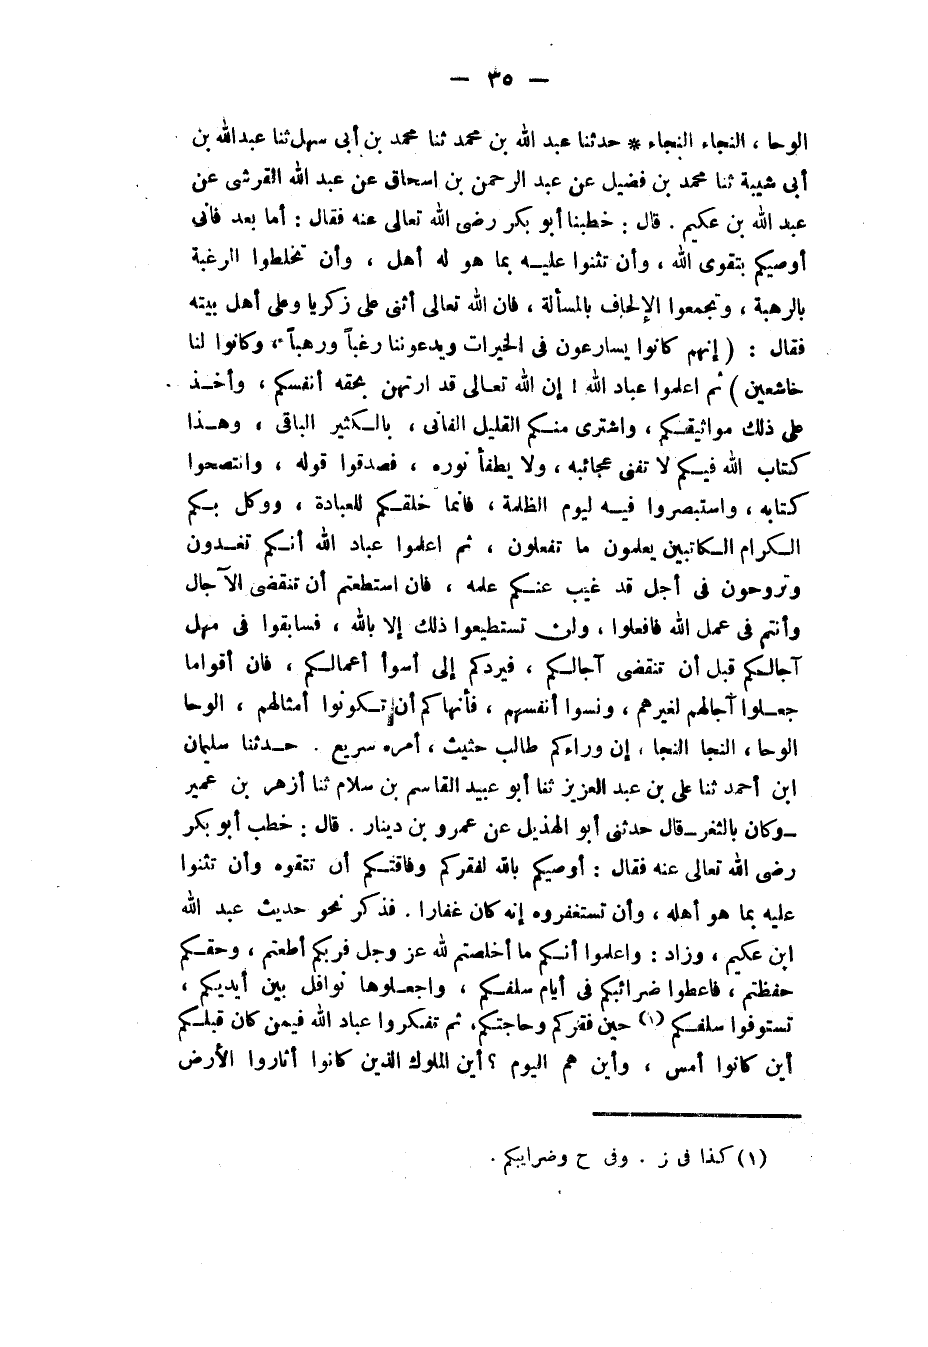 — ٣٥ —
الوحا ، النجاء النجاء * حدثنا عبد الله بن محمد ثنا محمد بن أبى سهل ثنا عبدالله بن
أبى شيبة ثنا محمد بن فضيل عن عبد الرحمن بن اسحاق عن عبد الله القرشى عن
عبد الله بن عكيم . قال : خطبنا أبو بكر رضى الله تعالى عنه فقال : أما بعد فانى
أوصيكم بتقوى الله ، وأن تثنوا عليه بما هو له أهل ، وأن تخلطوا الرغبة
بالرهبة ، وتجمعوا الإلحاف بالمسألة ، فان الله تعالى أثنى على زكريا وعلى أهل بيته
فقال : ( إنهم كانوا يسارعون فى الخيرات ويدعوننا رغباً ورهباً ، وكانوا لنا
خاشعين ) ثم اعلموا عباد الله ! إن الله تعالى قد ارتهن بحقه أنفسكم ، وأخذ
على ذلك مواثيقكم ، واشترى منكم القليل الفانى ، بالكثير الباقى ، وهذا
كتاب الله فيكم لا تفنى عجائبه ، ولا يطفأ نوره ، فصدقوا قوله ، وانتصحوا
كتابه ، واستبصروا فيه ليوم الظلمة ، فانما خلقكم للعبادة ، ووكل بكم
الكرام الكاتبين يعلمون ما تفعلون ، ثم اعلموا عباد الله أنكم تغدون
وتروحون فى أجل قد غيب عنكم علمه ، فان استطعتم أن تنقضى الآجال
وأنتم فى عمل الله فافعلوا ، ولن تستطيعوا ذلك إلا بالله ، فسابقوا فى مهل
آجالكم قبل أن تنقضى آجالكم ، فيردكم إلى أسوأ أعمالكم ، فان أقواما
جعلوا آجالهم لغيرهم ، ونسوا أنفسهم ، فأنهاكم أن تكونوا أمثالهم ، الوحا
الوحا ، النجا النجا ، إن وراءكم طالب حثيث ، أمره سريع . حدثنا سليمان
ابن أحمد ثنا على بن عبد العزيز ثنا أبو عبيد القاسم بن سلام ثنا أزهر بن عمير
ـ وكان بالثغر ـ قال حدثنى أبو الهذيل عن عمرو بن دينار . قال : خطب أبو بكر
رضى الله تعالى عنه فقال : أوصيكم بالله لفقركم وفاقتكم أن تتقوه وأن تثنوا
عليه بما هو أهله ، وأن تستغفروه إنه كان غفارا . فذكر نحو حديث عبد الله
ابن عكيم ، وزاد : واعلموا أنكم ما أخلصتم لله عز وجل فربكم أطعتم ، وحقكم
حفظتم ، فاعطوا ضرائبكم فى أيام سلفكم ، واجعلوها نوافل بين أيديكم ،
تستوفوا سلفكم (١) حين فقركم وحاجتكم ، ثم تفكروا عباد الله فيمن كان قبلكم
أين كانوا أمس ، وأين هم اليوم ؟ أين الملوك الذين كانوا أثاروا الأرض
(١) كذا فى ز . وفى ح وضرايبكم .